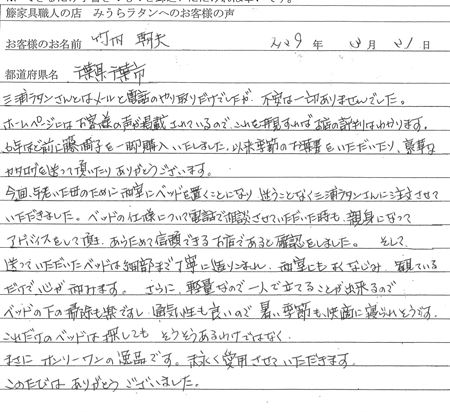 籐家具職人の店 みうらラタンへのお客様の声
お客様のお名前 竹内 229年 3月21日
都道府県名 千葉県千葉市
三浦ラタンさんとはメールと電話のやり取りだけでしたが、不安は一切ありませんでした。
ホームページにはお客様の声が掲載されているので、これを拝見すればお店の評判はわかります。
6年ほど前に籐椅子を一脚購入いたしました。以来季節のお葉書をいただいたり、豪華な
カタログを送って頂いたりありがとうございます。
今回、年老いた母のために和室にベッドを置くことになり 迷うことなく三浦ラタンさんに注文させて
いただきました。ベッドの仕様について電話で相談させていただいた時も、親身になって
アドバイスをして頂き、あらためて信頼できるお店であると確認をしました。そして
送っていただいたベッドは細部まで丁寧に造りこまれ、和室にもよくなじみ、観ている
だけで心が和みます。さらに、軽量なので一人で立てることが出来るので
ベッドの下の掃除も楽ですし、通気性も良いので暑い季節も快適に寝られそうです。
これだけのベッドは探しても そうそうあるわけではなく、
まさにオンリーワンの逸品です。末永く愛用させていただきます。
このたびは ありがとうございました。